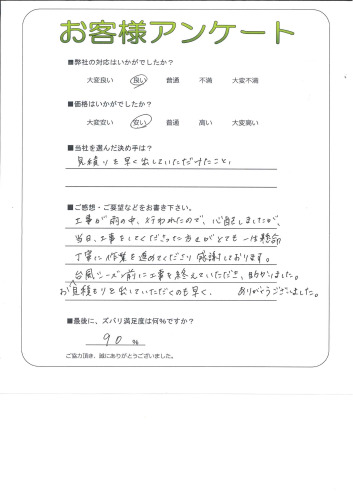 お客様アンケート
■弊社の対応はいかがでしたか？
大変良い 良い 普通 不満 大変不満
■価格はいかがでしたか？
大変安い 安い 普通 高い 大変高い
■当社を選んだ決め手は？
見積りを早く出していただけたこと。
■ご感想・ご要望などをお書き下さい。
工事が雨の中、行われたので、心配しましたが、
当日、工事をしてくださった方々がとても一生懸命
丁寧に作業を進めてくださり感謝しております。
台風シーズン前に工事を終えていただき、助かりました。
お見積もりを出していただくのも早く、ありがとうございました。
■最後に、ズバリ満足度は何％ですか？
90 %
ご協力頂き、誠にありがとうございました。